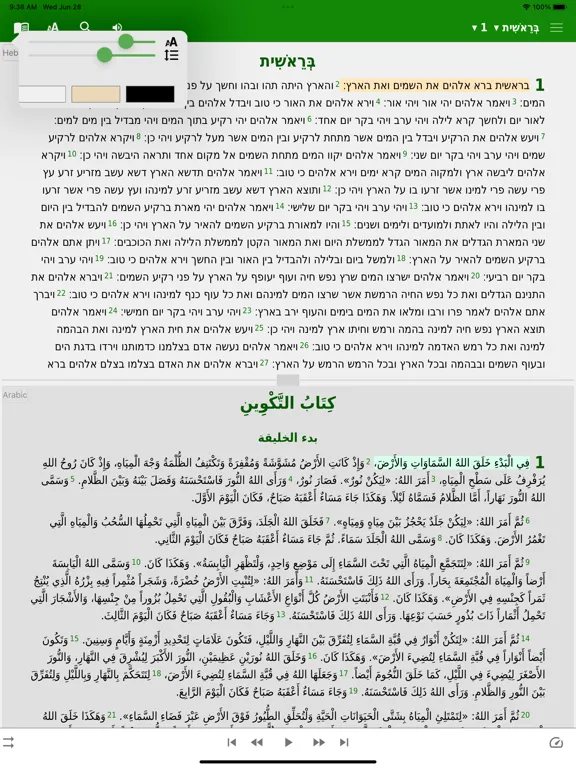 9:36 AM Wed Jun 28
100%
בְּרֵאשִׁית ▾ 1 ▾
AA
AA
Heb
בְּרֵאשִׁית
1 בראשית ברא אלהים את השמים ואת הארץ: 2 והארץ היתה תהו ובהו וחשך על פני
המים: 3 ויאמר אלהים יהי אור ויהי אור: 4 וירא אלהים את האור כי טוב ויבדל אלהים בין
לאור יום ולחשך קרא לילה ויהי ערב ויהי בקר יום אחד: 6 ויאמר אלהים יהי רקיע בתוך המים ויהי מבדיל בין מים למים:
7 ויעש אלהים את הרקיע ויבדל בין המים אשר מתחת לרקיע ובין המים אשר מעל לרקיע ויהי כן: 8 ויקרא אלהים לרקיע
שמים ויהי ערב ויהי בקר יום שני: 9 ויאמר אלהים יקוו המים מתחת השמים אל מקום אחד ותראה היבשה ויהי כן: 10 ויקרא
אלהים ליבשה ארץ ולמקוה המים קרא ימים וירא אלהים כי טוב: 11 ויאמר אלהים תדשא הארץ דשא עשב מזריע זרע עץ
פרי עשה פרי למינו אשר זרעו בו על הארץ ויהי כן: 12 ותוצא הארץ דשא עשב מזריע זרע למינהו ועץ עשה פרי אשר זרעו
בו למינהו וירא אלהים כי טוב: 13 ויהי ערב ויהי בקר יום שלישי: 14 ויאמר אלהים יהי מארת ברקיע השמים להבדיל בין היום
ובין הלילה והיו לאתת ולמועדים ולימים ושנים: 15 והיו למאורת ברקיע השמים להאיר על הארץ ויהי כן: 16 ויעש אלהים את
שני המארת הגדלים את המאור הגדל לממשלת היום ואת המאור הקטן לממשלת הלילה ואת הכוכבים: 17 ויתן אתם אלהים
ברקיע השמים להאיר על הארץ: 18 ולמשל ביום ובלילה ולהבדיל בין האור ובין החשך וירא אלהים כי טוב: 19 ויהי ערב ויהי
בקר יום רביעי: 20 ויאמר אלהים ישרצו המים שרץ נפש חיה ועוף יעופף על הארץ על פני רקיע השמים: 21 ויברא אלהים את
התנינם הגדלים ואת כל נפש החיה הרמשת אשר שרצו המים למינהם ואת כל עוף כנף למינהו וירא אלהים כי טוב: 22 ויברך
אתם אלהים לאמר פרו ורבו ומלאו את המים בימים והעוף ירב בארץ: 23 ויהי ערב ויהי בקר יום חמישי: 24 ויאמר אלהים
תוצא הארץ נפש חיה למינה בהמה ורמש וחיתו ארץ למינה ויהי כן: 25 ויעש אלהים את חית הארץ למינה ואת הבהמה
למינה ואת כל רמש האדמה למינהו וירא אלהים כי טוב: 26 ויאמר אלהים נעשה אדם בצלמנו כדמותנו וירדו בדגת הים
ובעוף השמים ובבהמה ובכל הארץ ובכל הרמש הרמש על הארץ: 27 ויברא אלהים את האדם בצלמו בצלם אלהים ברא
Arabic
كِتَابُ التَّكْوِينِ
بدء الخليقة
1 فِي الْبَدْءِ خَلَقَ اللهُ السَّمَاوَاتِ وَالأَرْضَ، 2 وَإِذْ كَانَتِ الأَرْضُ مُشَوَّشَةً وَمُقْفِرَةً وَتَكْتَنِفُ الظُّلْمَةُ وَجْهَ الْمِيَاهِ، وَإِذْ كَانَ رُوحُ اللهِ
يُرَفْرِفُ عَلَى سَطْحِ الْمِيَاهِ، 3 أَمَرَ اللهُ: «لِيَكُنْ نُورٌ». فَصَارَ نُورٌ، 4 وَرَأَى اللهُ النُّورَ فَاسْتَحْسَنَهُ وَفَصَلَ بَيْنَهُ وَبَيْنَ الظَّلامِ. 5 وَسَمَّى
اللهُ النُّورَ نَهَاراً، أَمَّا الظَّلامُ فَسَمَّاهُ لَيْلاً. وَهَكَذَا جَاءَ مَسَاءٌ أَعْقَبَهُ صَبَاحٌ، فَكَانَ الْيَوْمَ الأَوَّلَ.
6 ثُمَّ أَمَرَ اللهُ: «لِيَكُنْ جَلَدٌ يَحْجُزُ بَيْنَ مِيَاهٍ وَمِيَاهٍ». 7 فَخَلَقَ اللهُ الْجَلَدَ، وَفَرَّقَ بَيْنَ الْمِيَاهِ الَّتِي تَحْمِلُهَا السُّحُبُ وَالْمِيَاهِ الَّتِي
تَغْمُرُ الأَرْضَ. وَهَكَذَا كَانَ. 8 وَسَمَّى اللهُ الْجَلَدَ سَمَاءً. ثُمَّ جَاءَ مَسَاءٌ أَعْقَبَهُ صَبَاحٌ فَكَانَ الْيَوْمَ الثَّانِي.
9 ثُمَّ أَمَرَ اللهُ: «لِتَتَجَمَّعِ الْمِيَاهُ الَّتِي تَحْتَ السَّمَاءِ إِلَى مَوْضِعٍ وَاحِدٍ، وَلْتَظْهَرِ الْيَابِسَةُ». وَهَكَذَا كَانَ. 10 وَسَمَّى اللهُ الْيَابِسَةَ
أَرْضاً وَالْمِيَاهَ الْمُجْتَمِعَةَ بِحَاراً. وَرَأَى اللهُ ذَلِكَ فَاسْتَحْسَنَهُ. 11 وَأَمَرَ اللهُ: «لِتُنْبِتِ الأَرْضُ خُضْرَةً، وَشَجَراً مُثْمِراً فِيهِ بِزْرُهُ الَّذِي يُنْتِجُ
ثَمَراً كَجِنْسِهِ فِي الأَرْضِ». وَهَكَذَا كَانَ. 12 فَأَنْبَتَتِ الأَرْضُ كُلَّ أَنْوَاعِ الأَعْشَابِ وَالْبُقُولِ الَّتِي تَحْمِلُ بُزُوراً مِنْ جِنْسِهَا، وَالأَشْجَارَ الَّتِي
تَحْمِلُ أَثْمَاراً ذَاتَ بُذُورٍ حَسَبَ نَوْعِهَا. وَرَأَى اللهُ ذَلِكَ فَاسْتَحْسَنَهُ. 13 وَجَاءَ مَسَاءٌ أَعْقَبَهُ صَبَاحٌ فَكَانَ الْيَوْمَ الثَّالِثَ.
14 ثُمَّ أَمَرَ اللهُ: «لِتَكُنْ أَنْوَارٌ فِي قُبَّةِ السَّمَاءِ لِتُفَرِّقَ بَيْنَ النَّهَارِ وَاللَّيْلِ، فَتَكُونَ عَلامَاتٍ لِتَحْدِيدِ أَزْمِنَةٍ وَأَيَّامٍ وَسِنِينَ. 15 وَتَكُونَ
أَيْضاً أَنْوَاراً فِي قُبَّةِ السَّمَاءِ لِتُضِيءَ الأَرْضَ». وَهَكَذَا كَانَ. 16 وَخَلَقَ اللهُ نُورَيْنِ عَظِيمَيْنِ، النُّورَ الأَكْبَرَ لِيُشْرِقَ فِي النَّهَارِ، وَالنُّورَ
الأَصْغَرَ لِيُضِيءَ فِي اللَّيْلِ، كَمَا خَلَقَ النُّجُومَ أَيْضاً. 17 وَجَعَلَهَا اللهُ فِي قُبَّةِ السَّمَاءِ لِتُضِيءَ الأَرْضَ، 18 لِتَتَحَكَّمَ بِالنَّهَارِ وَبِاللَّيْلِ وَلِتُفَرِّقَ
بَيْنَ النُّورِ وَالظَّلامِ. وَرَأَى اللهُ ذَلِكَ فَاسْتَحْسَنَهُ. 19 وَجَاءَ مَسَاءٌ أَعْقَبَهُ صَبَاحٌ فَكَانَ الْيَوْمَ الرَّابِعَ.
20 ثُمَّ أَمَرَ اللهُ: «لِتَمْتَلِئِ الْمِيَاهُ بِشَتَّى الْحَيَوَانَاتِ الْحَيَّةِ وَلْتُحَلِّقِ الطُّيُورُ فَوْقَ الأَرْضِ عَبْرَ فَضَاءِ السَّمَاءِ». 21 وَهَكَذَا خَلَقَ اللهُ